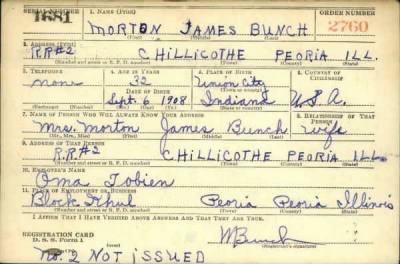 SERIAL NUMBER 1. NAME (Print) ORDER NUMBER
1681 MORTON JAMES BUNCH 2760
2. ADDRESS (Print)
R.R.#2 CHILLICOTHE PEORIA ILL.
(Number and street or R. F. D. number) (Town) (County) (State)
3. TELEPHONE 4. AGE IN YEARS 5. PLACE OF BIRTH 6. COUNTRY OF CITIZENSHIP
none 32 Union City
DATE OF BIRTH (Town or county)
Sept. 6 1908 Indiana U.S.A.
(Exchange) (Number) (Mo.) (Day) (Yr.) (State or country)
7. NAME OF PERSON WHO WILL ALWAYS KNOW YOUR ADDRESS 8. RELATIONSHIP OF THAT PERSON
Mrs. Morton James Bunch wife
(Mr., Mrs., Miss) (First) (Middle) (Last)
9. ADDRESS OF THAT PERSON
R.R.#2 CHILLICOTHE PEORIA ILL
(Number and street or R. F. D. number) (Town) (County) (State)
10. EMPLOYER'S NAME
Oma Tobien
11. PLACE OF EMPLOYMENT OR BUSINESS
Block Peoria Peoria Illinois
(Number and street or R. F. D. number) (Town) (County) (State)
I AFFIRM THAT I HAVE VERIFIED ABOVE ANSWERS AND THAT THEY ARE TRUE.
REGISTRATION CARD
D. S. S. Form 1 M Bunch
(Registrant's signature)
NO. 2 NOT ISSUED